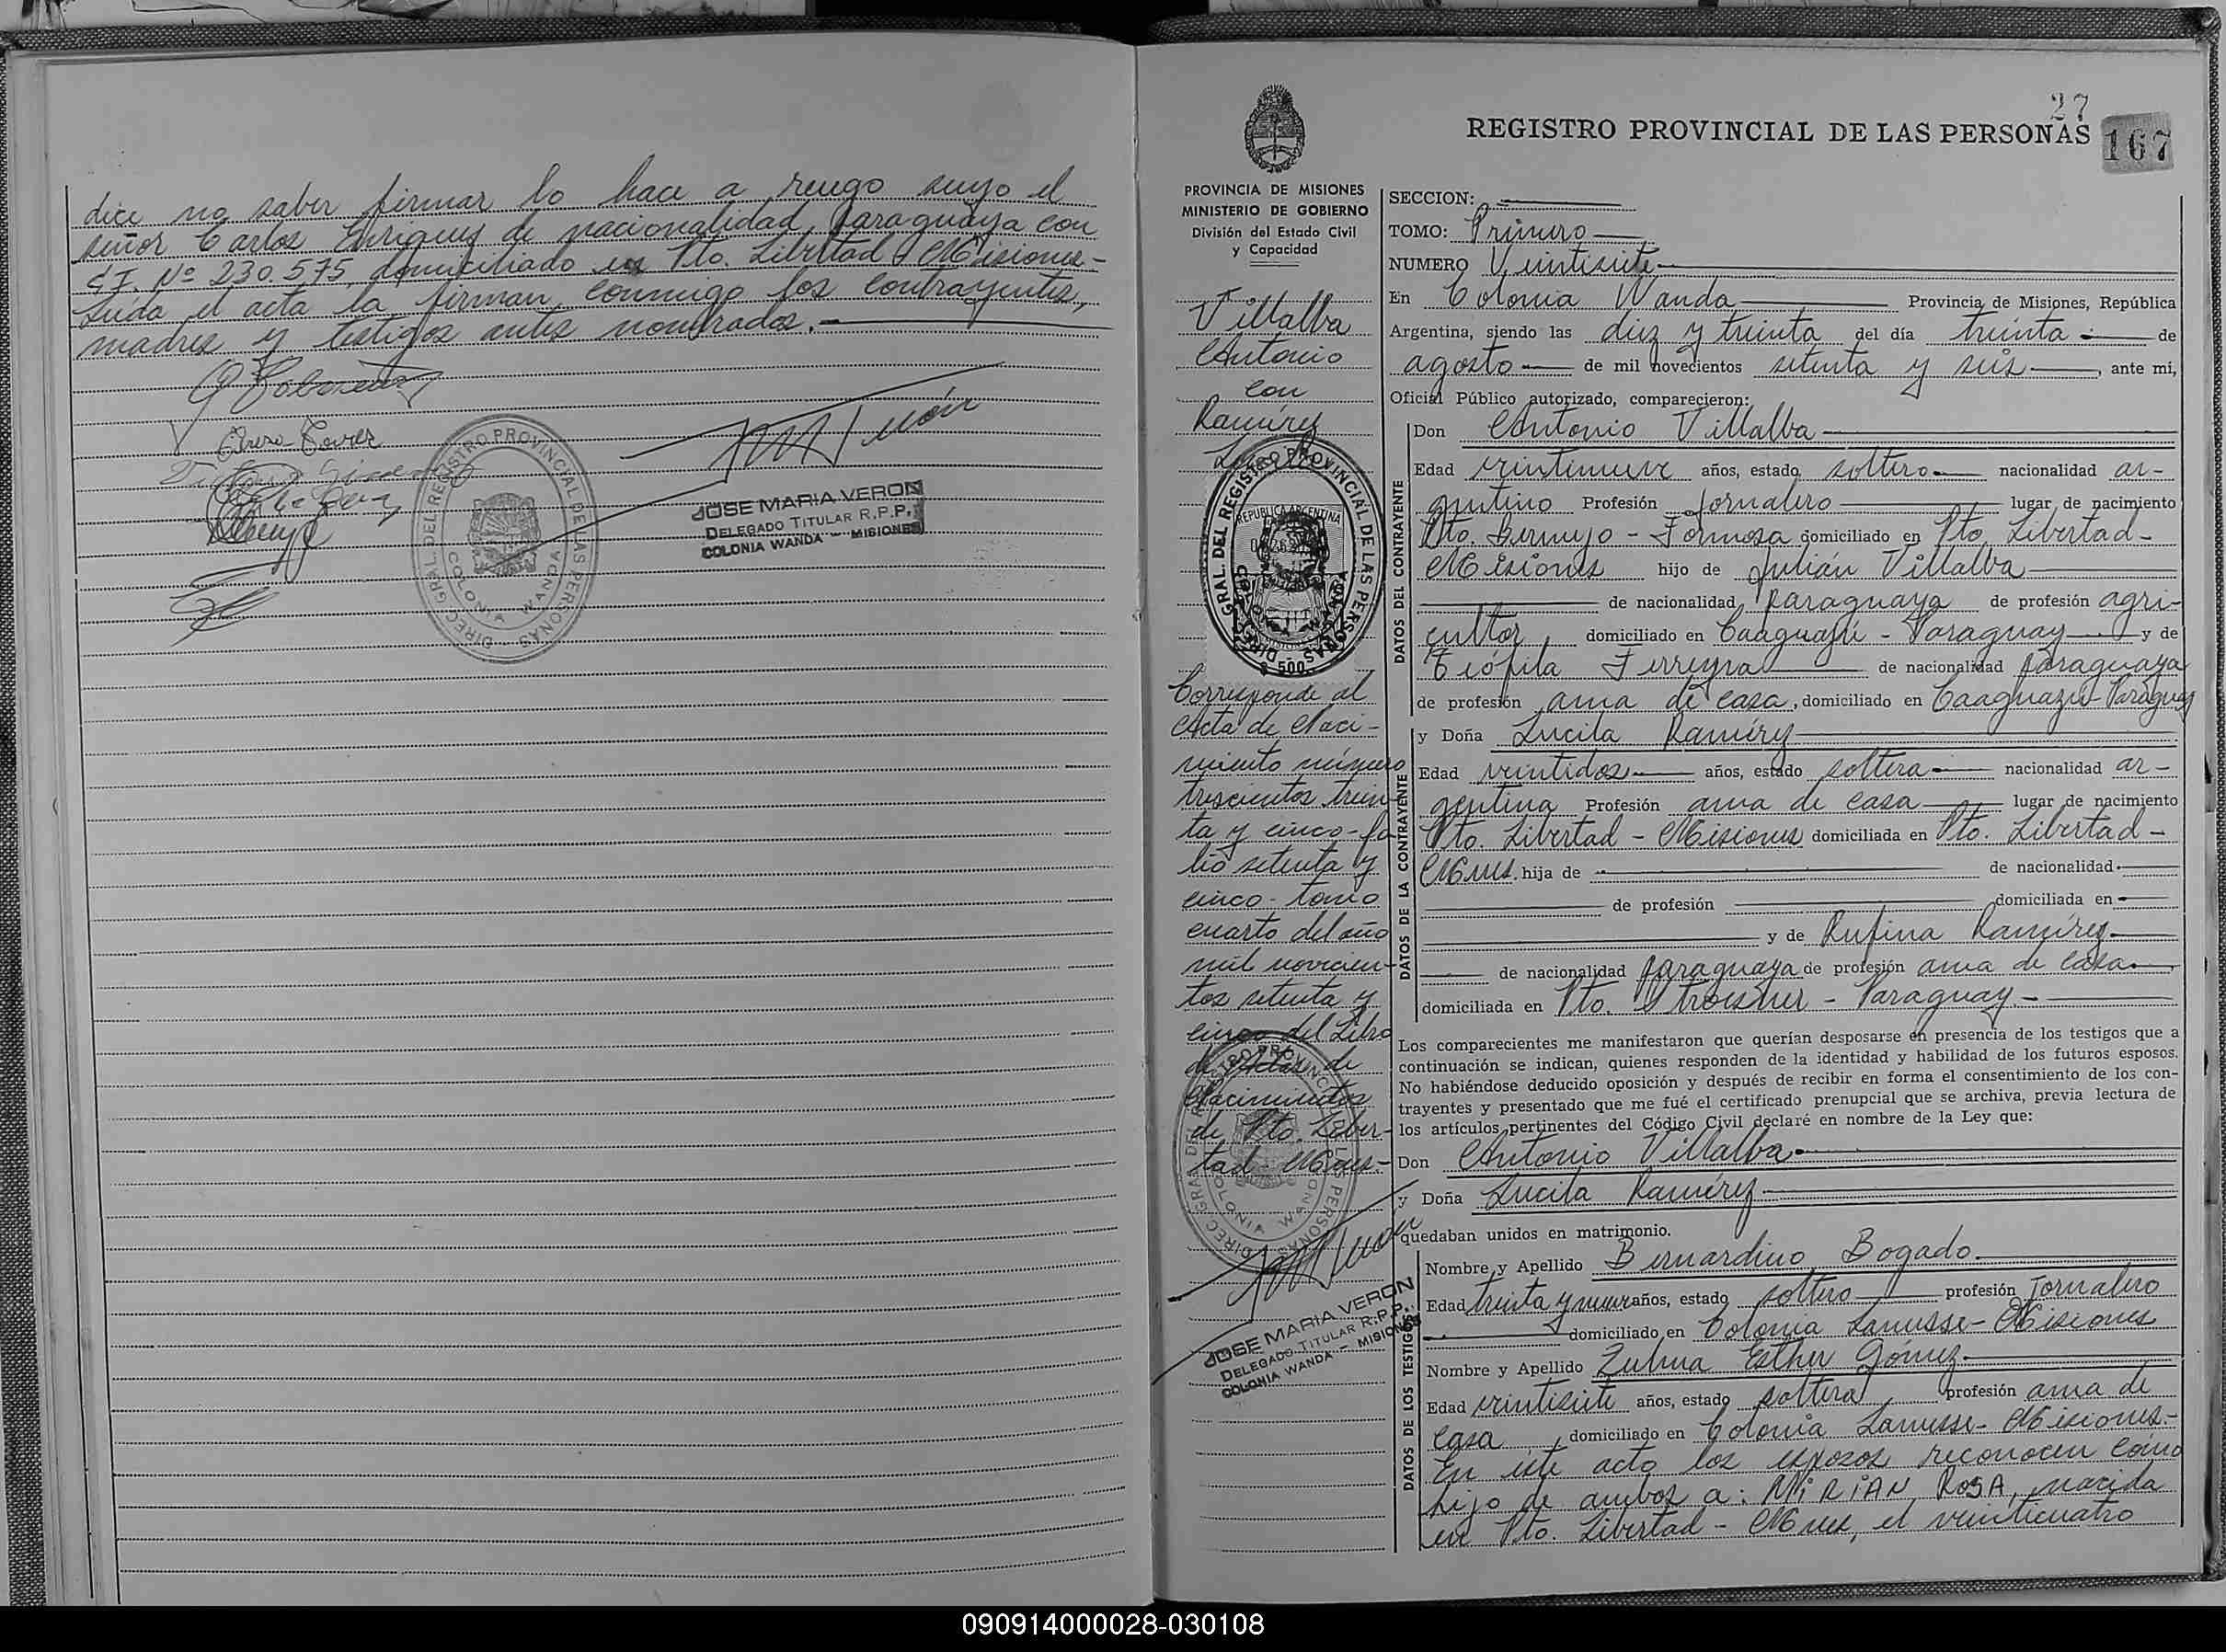 dice no saber firmar lo hace a ruego suyo el
señor Carlos Enriquez de nacionalidad paraguaya con
C.I. Nº 230.575, domiciliado en Pto. Libertad Misiones-
Leída el acta la firman conmigo los contrayentes,
madres y testigos antes nombrados.
JOSE MARIA VERON
DELEGADO TITULAR R.P.P.
COLONIA WANDA - MISIONES
DIREC. GRAL. DEL REGISTRO PROVINCIAL DE LAS PERSONAS
COLONIA WANDA
27
REGISTRO PROVINCIAL DE LAS PERSONAS
167
PROVINCIA DE MISIONES
MINISTERIO DE GOBIERNO
División del Estado Civil
y Capacidad
Villalba
Antonio
con
Ramírez
Lucila
DIREC. GRAL. DEL REGISTRO PROVINCIAL DE LAS PERSONAS
REPUBLICA ARGENTINA
$ 500
Corresponde al
Acta de Naci-
miento número
trescientos trein-
ta y cinco-fo-
lio setenta y
cinco-tomo
cuarto del año
mil novecien-
tos setenta y
cinco del Libro
de Actas de
Nacimientos
de Pto. Liber-
tad-Mnes.-
DIREC. GRAL. DEL REGISTRO PROVINCIAL DE LAS PERSONAS
COLONIA WANDA
JOSE MARIA VERON
DELEGADO TITULAR R.P.P.
COLONIA WANDA - MISIONES
SECCION:
TOMO: Primero
NUMERO Veintisiete
En Colonia Wanda Provincia de Misiones, República
Argentina, siendo las diez y treinta del día treinta de
agosto de mil novecientos setenta y seis, ante mí,
Oficial Público autorizado, comparecieron:
DATOS DEL CONTRAYENTE
Don Antonio Villalba
Edad veintinueve años, estado soltero nacionalidad ar-
gentino Profesión Jornalero lugar de nacimiento
Pto. Bermejo - Formosa domiciliado en Pto. Libertad-
Misiones hijo de Julián Villalba
de nacionalidad paraguaya de profesión agri-
cultor, domiciliado en Caaguazú - Paraguay y de
Teófila Ferreyra de nacionalidad paraguaya
de profesión ama de casa, domiciliado en Caaguazú-Paraguay
DATOS DE LA CONTRAYENTE
y Doña Lucila Ramírez
Edad veintidos años, estado soltera nacionalidad ar-
gentina Profesión ama de casa lugar de nacimiento
Pto. Libertad - Misiones domiciliada en Pto. Libertad-
Mnes. hija de de nacionalidad
de profesión domiciliada en
y de Rufina Ramírez
de nacionalidad paraguaya de profesión ama de casa
domiciliada en Pto. Stroesner - Paraguay-
Los comparecientes me manifestaron que querían desposarse en presencia de los testigos que a
continuación se indican, quienes responden de la identidad y habilidad de los futuros esposos.
No habiéndose deducido oposición y después de recibir en forma el consentimiento de los con-
trayentes y presentado que me fué el certificado prenupcial que se archiva, previa lectura de
los artículos pertinentes del Código Civil declaré en nombre de la Ley que:
Don Antonio Villalba
y Doña Lucila Ramírez
quedaban unidos en matrimonio.
DATOS DE LOS TESTIGOS
Nombre y Apellido Bernardino Bogado
Edad treinta y nueve años, estado soltero profesión Jornalero
domiciliado en Colonia Lanusse-Misiones
Nombre y Apellido Zulma Esther Gómez
Edad veintisiete años, estado soltera, profesión ama de
casa, domiciliado en Colonia Lanusse-Misiones.-
En este acto los esposos reconocen como
hijo de ambos a: MIRIAN ROSA, nacida
en Pto. Libertad - Mnes, el veinticuatro
090914000028-030108